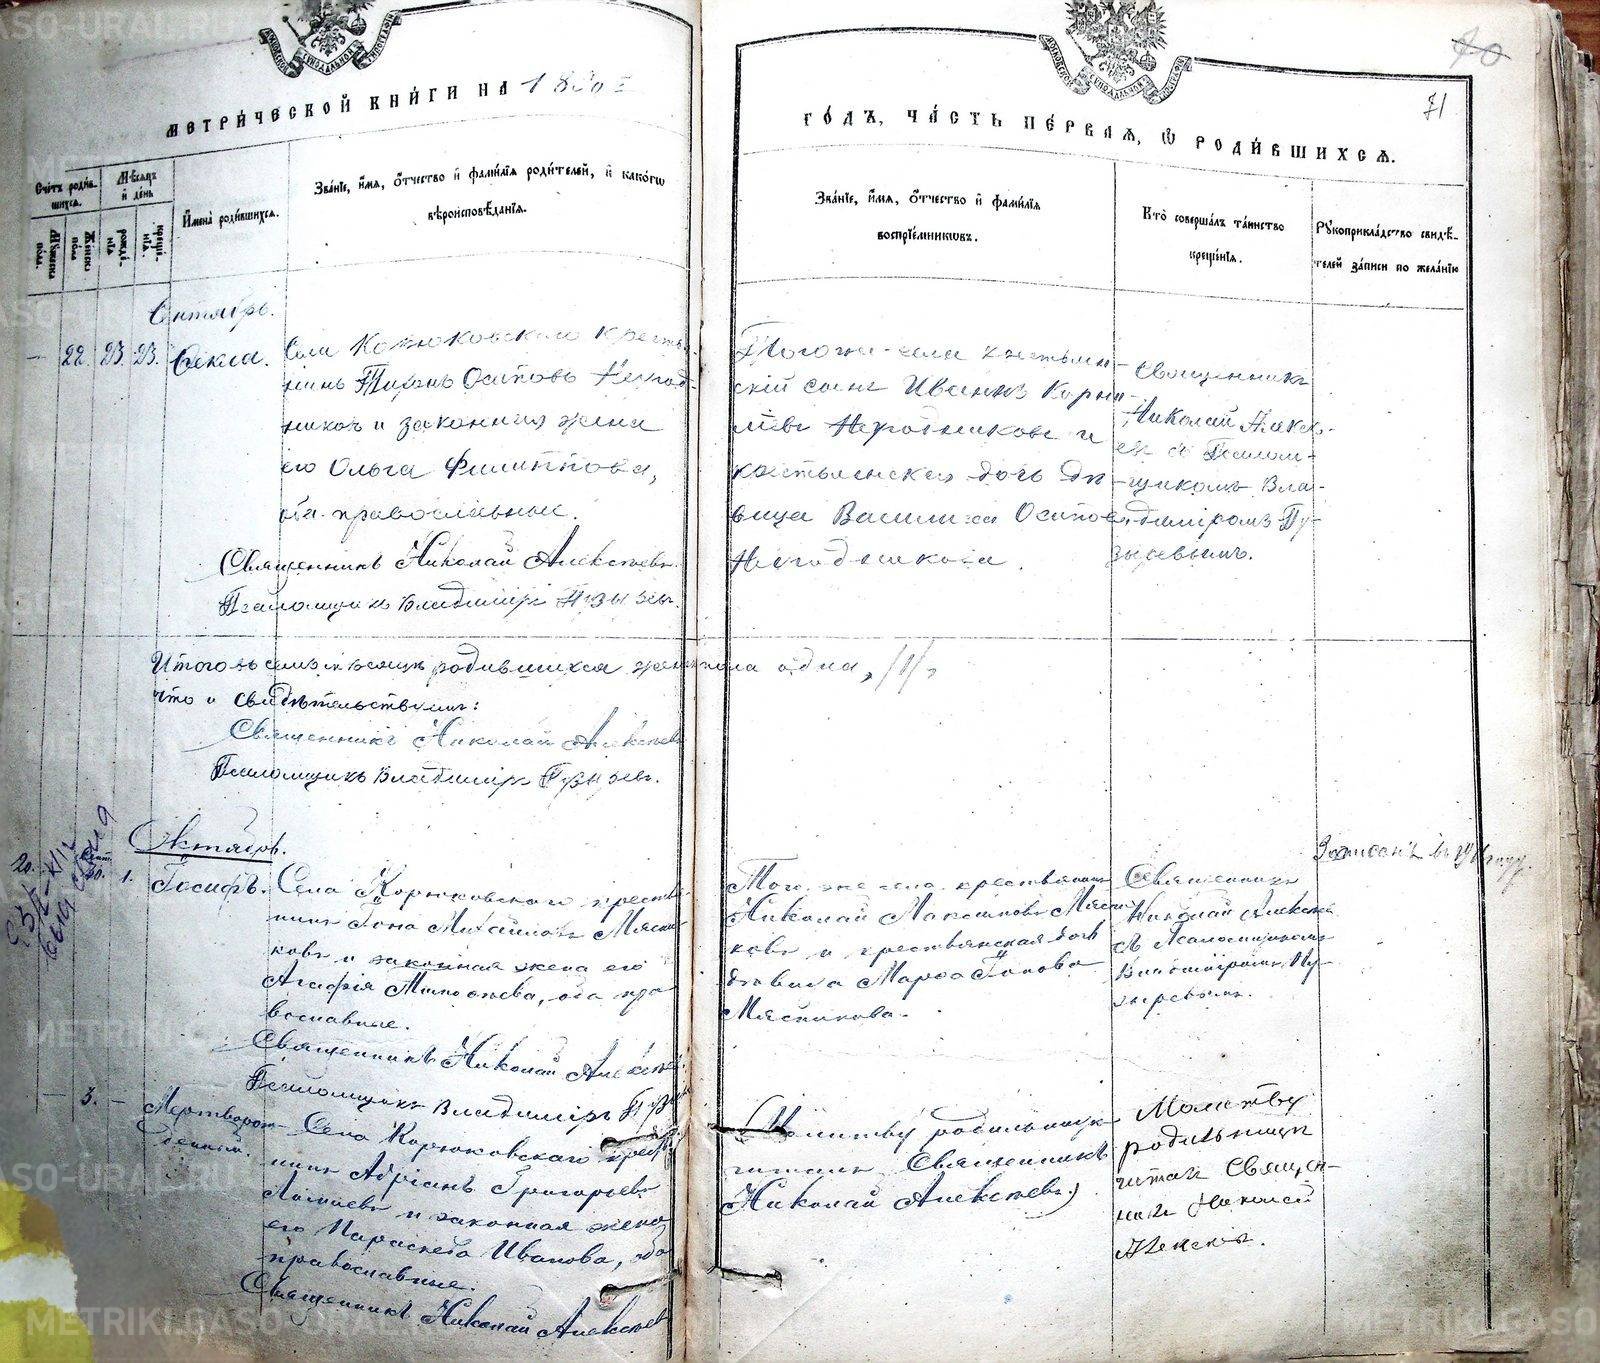 МЕТРИ́ЧЕСКОЙ КНИ́ГИ НА
ГО́ДЪ, ЧА́СТЬ ПЕ́РВАѦ, Ѡ РОДИ́ВШИХСѦ.
71
Сче́тъ роди́в-
шихсѧ.
Мѣ́сѧцъ
и де́нь
Му́жеска
по́ла.
Же́нска
по́ла
рожде́-
нїѧ
креще́-
нїѧ.
Имена̀ роди́вшихсѧ.
Зва́нїе, и́мѧ, ѻ́тчество и̂ фами́лїѧ роди́телей, и̂ како́гѡ
вѣроисповѣ́данїѧ.
Зва́нїе, и́мѧ, ѻ́тчество и̂ фами́лїѧ
воспрїе́мникѡвъ.
Кто̀ соверша́лъ та́инство
креще́нїѧ.
Рꙋкоприкла́дство свидѣ́-
телей за́писи по жела́нїю
Сентябрь.
— 22. 23. 23. Ѳекла.
Села Корюковскаго кресть-
нинъ Тихонъ Осиповъ Негод-
никовъ и законная жена
его Ольга Филиппова,
оба православные.
Священникъ Николай Алексѣевъ.
Псаломщикъ Владиміръ Пузыревъ.
Того же села крестьян-
скій сынъ Иванъ Корни-
ліевъ Негодниковъ и
крестьянская дочь дѣ-
вица Василиса Осипова
Негодникова.
Священникъ
Николай Алексѣ-
евъ съ Псалом-
щикомъ Вла-
диміромъ Пу-
зыревымъ.
Итого въ семъ мѣсяцѣ родившихся женск. пола одна, /1/,
что и свидѣтельствуемъ:
Священникъ Николай Алексѣевъ
Псаломщикъ Владиміръ Пузыревъ.
Октябрь.
20. Сент. 30. 1. Іосифъ.
Села Корюковскаго крестья-
нинъ Іона Михайловъ Мясни-
ковъ и законная жена его
Агафія, оба пра-
вославные.
Священникъ Николай Алексѣевъ.
Псаломщикъ Владиміръ Пузыревъ
Того же села крестьянинъ
Николай Максимовъ Мясни-
ковъ и крестьянская дочь
дѣвица Марѳа Іонова
Мясникова.
Священникъ
Николай Алексѣевъ
съ Псаломщикомъ
Владиміромъ Пу-
зыревымъ.
Записанъ въ
— 3. — Мертворож-
денный.
Села Корюковскаго крестья-
нинъ Адріанъ Григорьевъ
и законная жена
его Параскева Иванова, оба
православные.
Священникъ Николай Алексѣевъ
(Молитву родильницѣ
читалъ Священникъ
Николай Алексѣевъ.)
Молитву
родильницѣ
читалъ Священ-
никъ Николай
Алексѣевъ.
METRIKI.GASO-URAL.RU